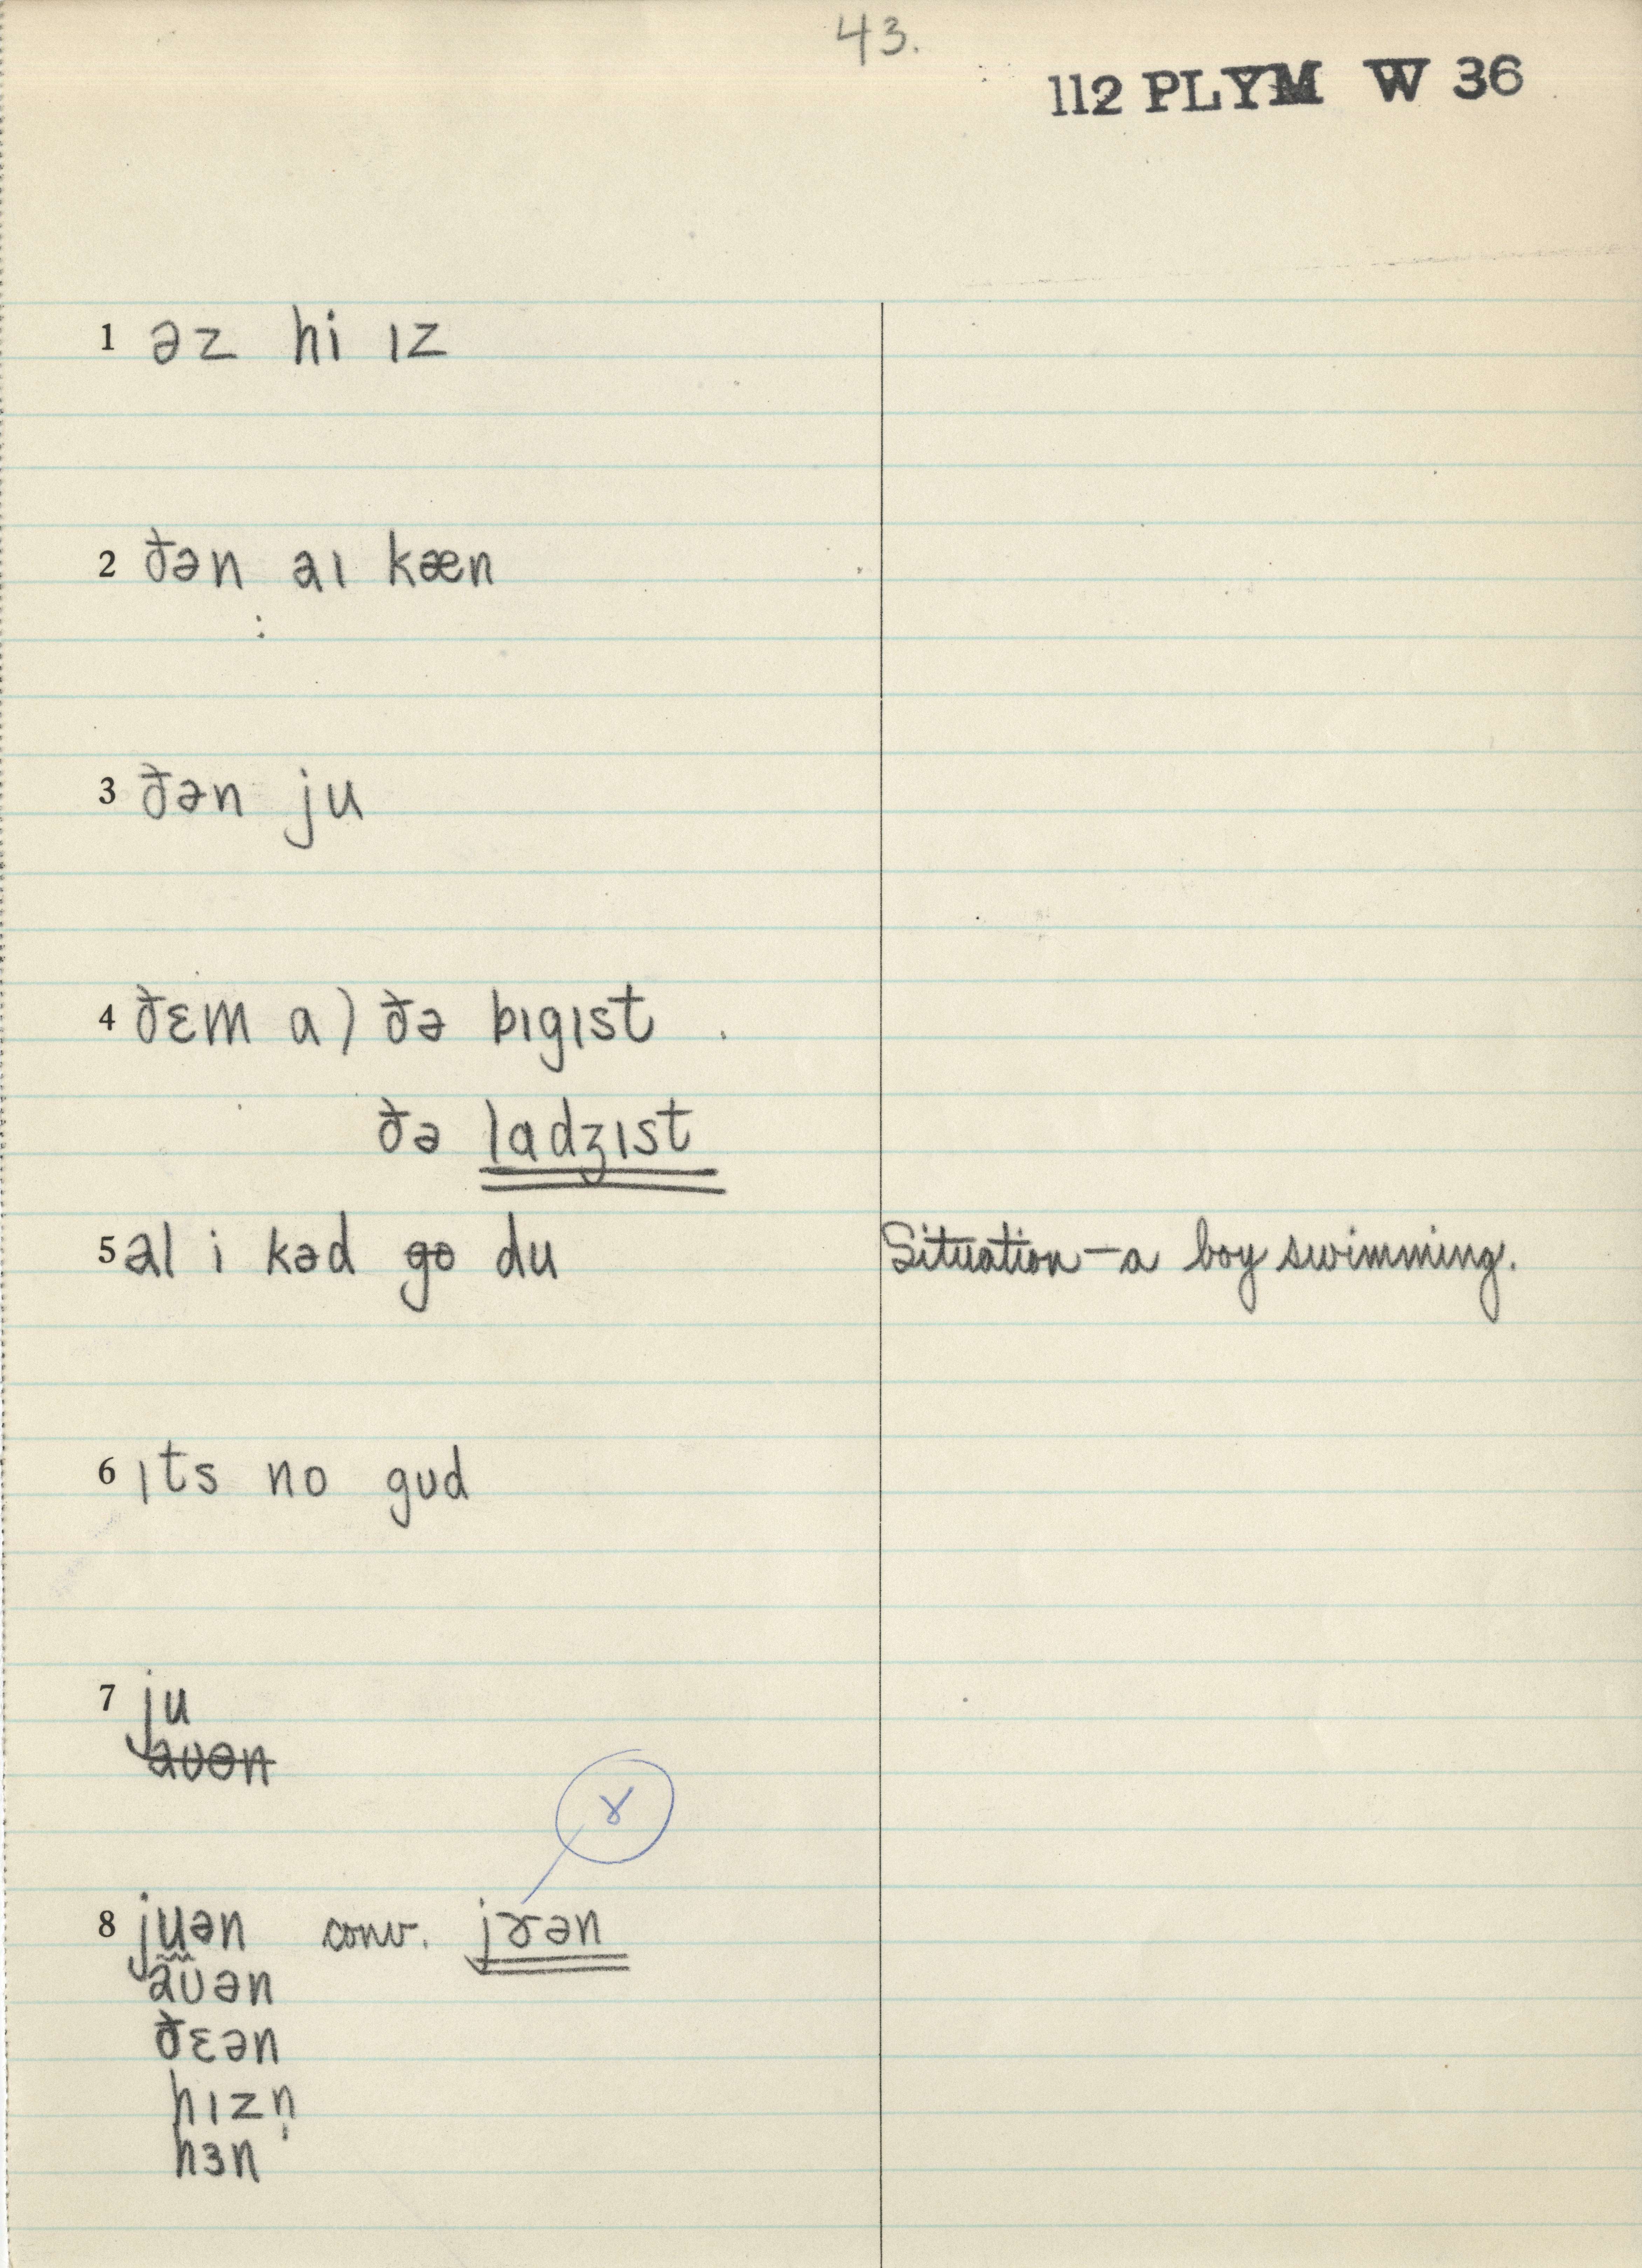 43.
112 PLYM W 36
1 əz hi ɪz
2 ðən aɪ kæn
3 ðən ju
4 ðɛm a) ðə bɪgɪst
ðə ladʒɪst
5 al i kəd go du Situation – a boy swimming.
6 ɪts no gʊd
7 ju
aʊən
ɤ
8 juən conv. jɤən
aʊən
ðɛən
hɪzn̩
hɜn